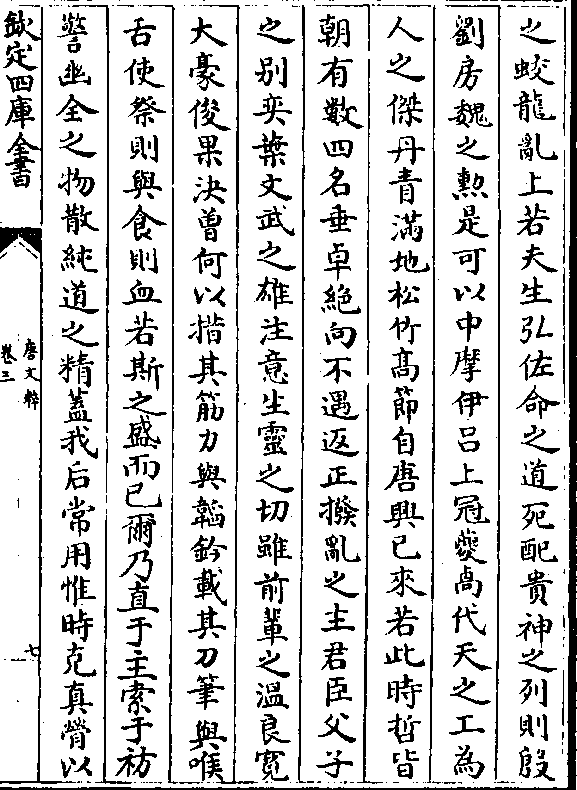 之蛟龍亂上若夫生弘佐命之道死配貴神之列則殷
劉房魏之勲是可以中摩伊呂上冠夔卨代天之工為
人之傑丹青滿地松竹髙節自唐興已來若此時哲皆
朝有數四名垂卓絶向不遇返正撥亂之主君臣父子
之别奕葉文武之雄注意生靈之切雖前輩之温良寛
大豪俊果決曽何以措其筋力與韜鈐載其刀筆與喉
舌使祭則與食則血若斯之盛而已爾乃直于主索于祊
警幽全之物散純道之精蓋我后常用惟時克真膋以
欽定四庫全書
唐文粹
卷三
七